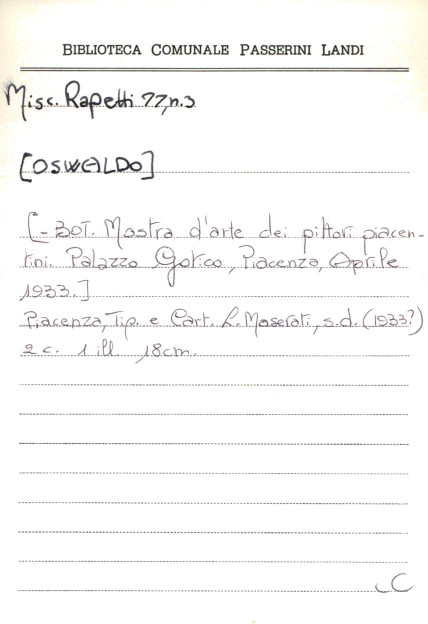 BIBLIOTECA COMUNALE PASSERINI LANDI
Misc. Rapetti 77, n.3
[OSWALDO]
[- BOT. Mostra d'arte dei pittori piacen-
tini. Palazzo Gotico, Piacenza, Aprile
1933.]
Piacenza, Tip. e Cart. L. Maserati, s.d. (1933?)
2 c. 1 ill 18cm.
CC